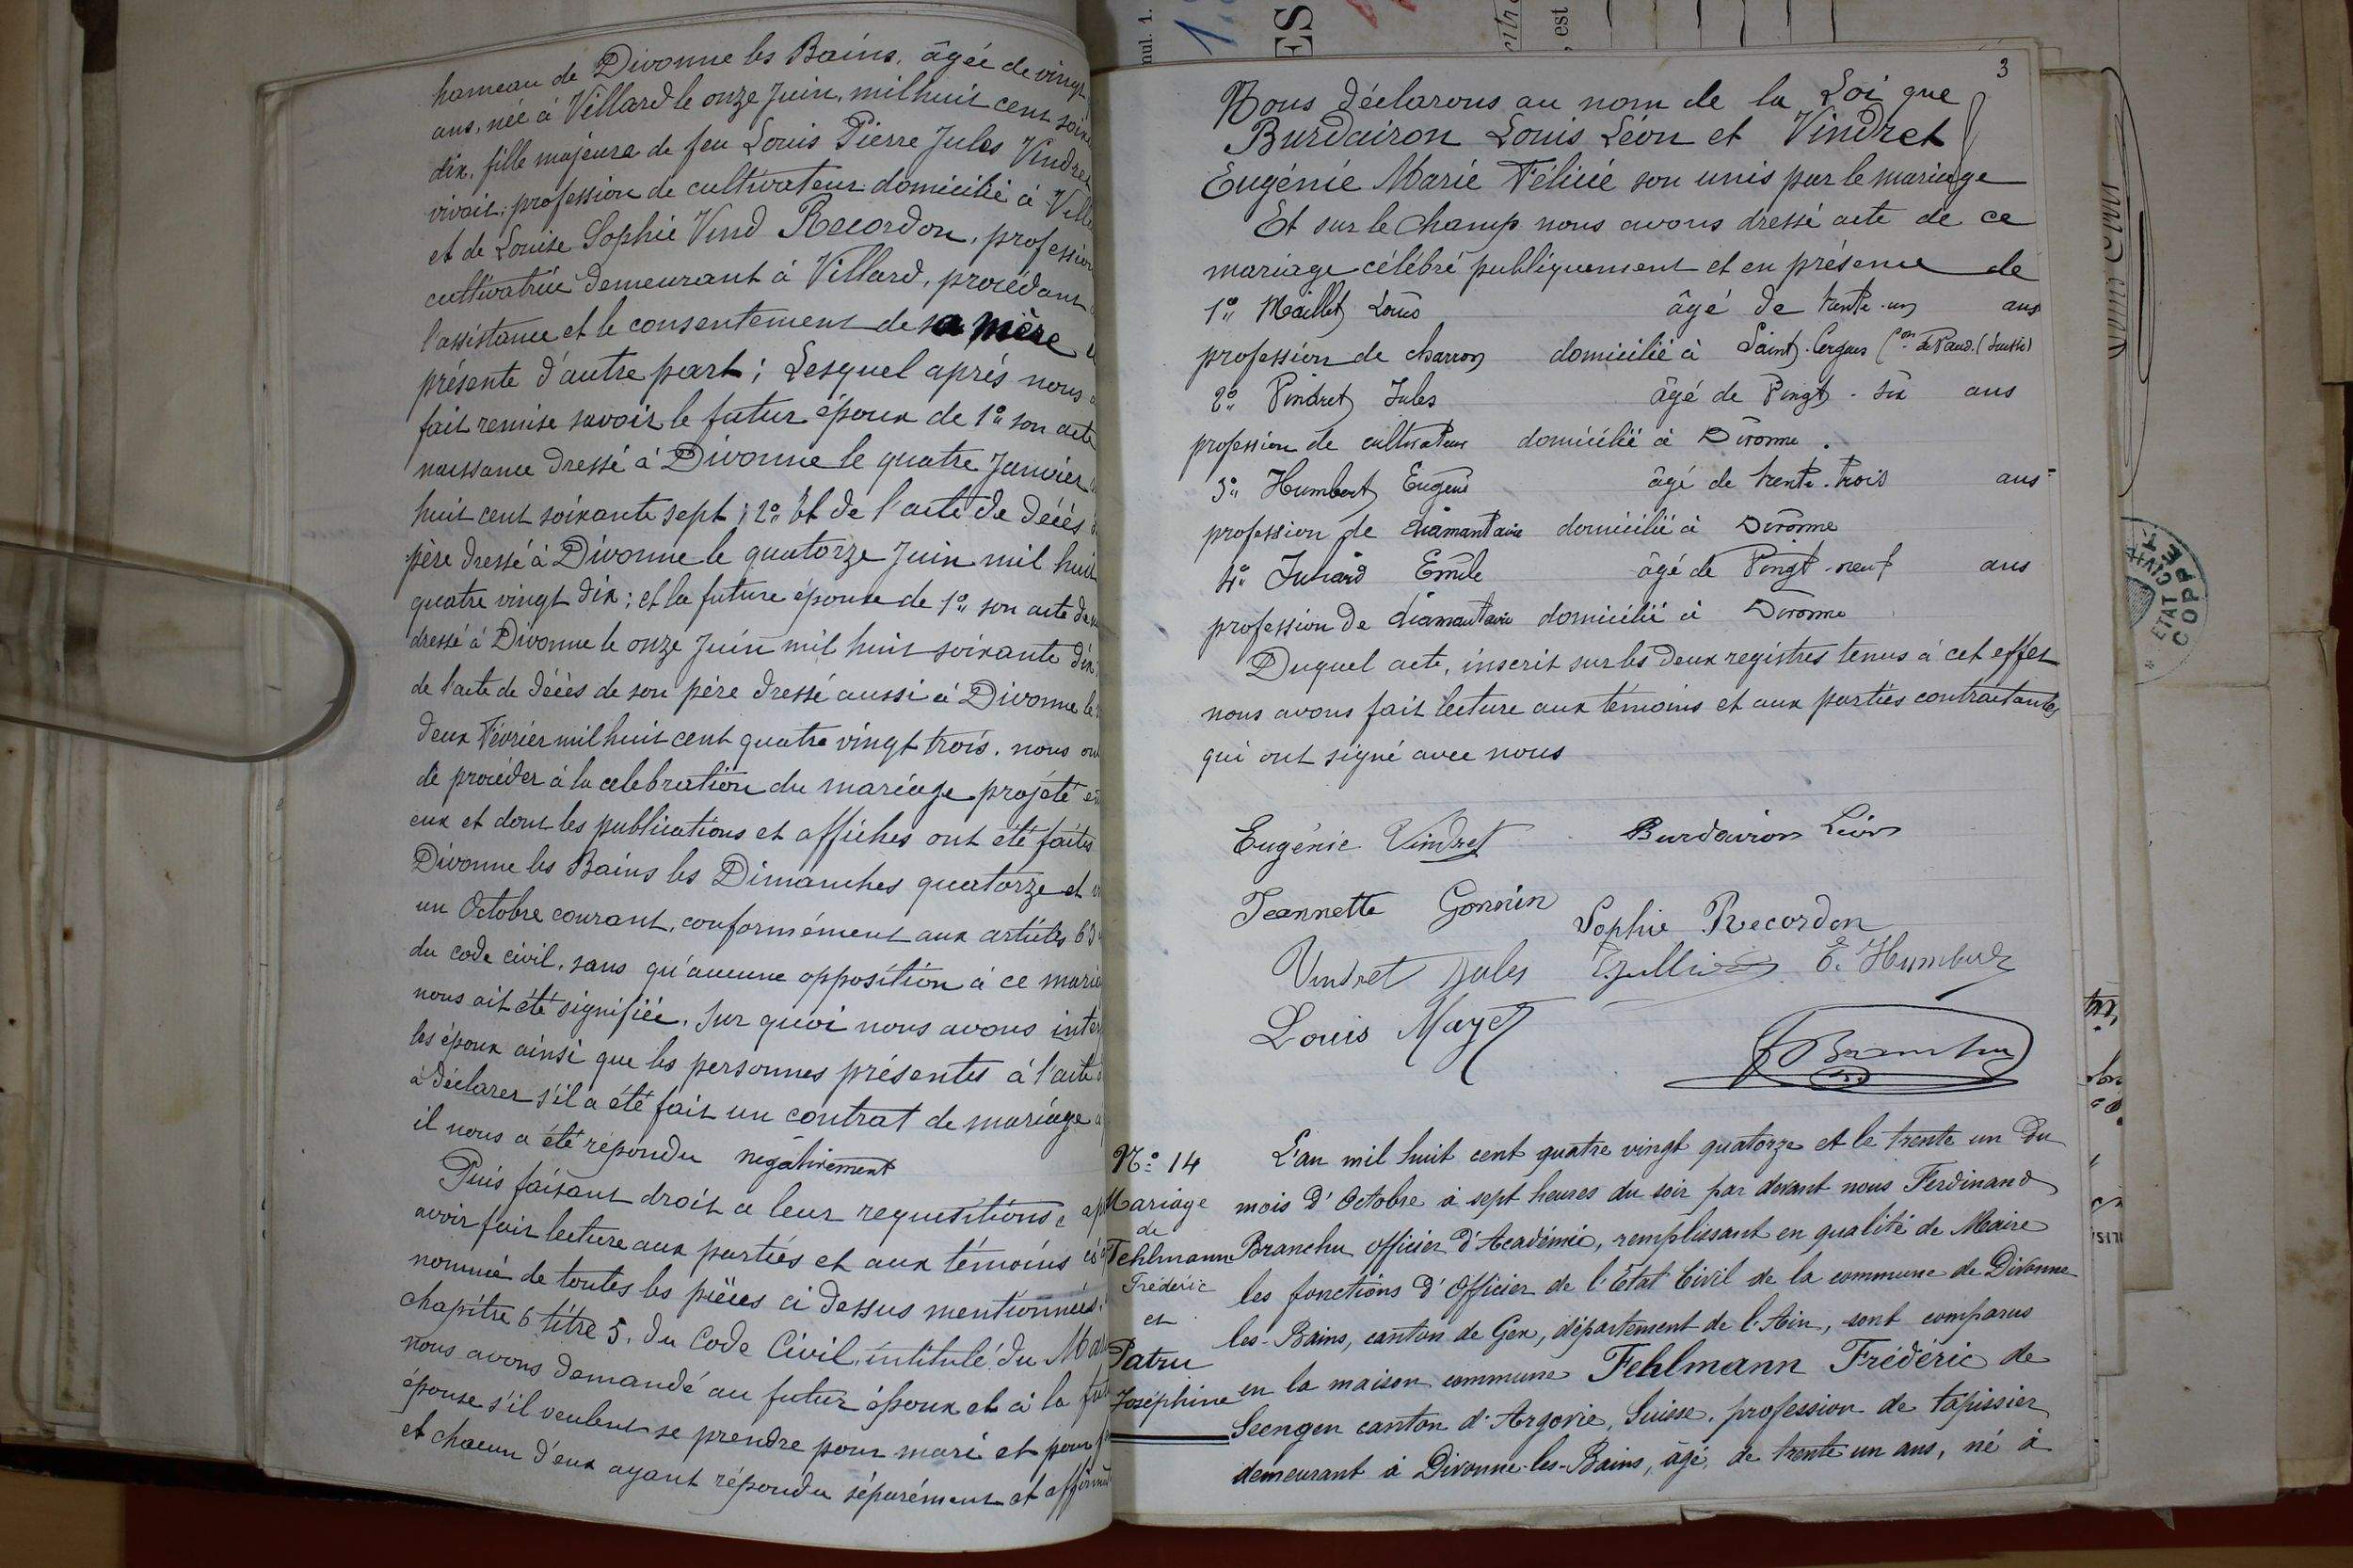 hameau de Divonne les Bains, âgée de vingt
ans, née à Villard le onze Juin, mil huit cent soix
dix, fille majeure de feu Louis Pierre Jules Vindret
vivait, profession de cultivateur domicilié à Villa
et de Louise Sophie Vind Recordon, profession
cultivatrice demeurant à Villard, procédant
l'assistance et le consentement de sa mère
présente d'autre part; Lesquel après nous
fait remise savoir le futur époux de 1° son acte
naissance dressé à Divonne le quatre Janvier
huit cent soixante sept; 2° Et de l'acte de décès
père dressé à Divonne le quatorze Juin mil huit
quatre vingt dix; et la future épouse de 1° son acte de
dressé à Divonne le onze Juin mil huit soixante dix
de l'acte de décès de son père dressé aussi à Divonne le
deux Février mil huit cent quatre vingt trois. nous on
de procéder à la celebration du mariage projété en
eux et dont les publications et affiches ont été faites
Divonne les Bains les Dimanches quatorze et
un Octobre courant, conformément aux articles 63
du code civil. sans qu'aucune opposition à ce mari
nous ait été signifiée. Sur quoi nous avons inter
les époux ainsi que les personnes présentes à l'acte
à déclarer s'il a été fait un contrat de mariage
il nous a été répondu négativement
Puis faisant droit a leur requisitions ap
avoir fait lecture aux parties et aux témoins
nommé de toutes les pièces ci dessus mentionnées
chapître 6 titre 5. du Code Civil intitulé du Ma
nous avons demandé au futur époux et à la fut
épouse s'il veulent se prendre pour mari et pour
et chacun d'eux ayant répondu séparément et affirma
3
Nous déclarons au nom de la Loi que
Burdairon Louis Léon et Vindret
Eugénie Marie Félicie son unis par le mariage
Et sur le champ nous avons dressé acte de ce
mariage célébré publiquement et en présence de
1° Maillet Louis âgé de trente-un ans
profession de charron domicilié à Saint-Cergues (Con de Vaud. (Suisse)
2° Vindret Jules âgé de Vingt-six ans
profession de cultivateur domicilié à Divonne.
3° Humbert Eugène âgé de trente-trois ans
profession de diamantaire domicilié à Divonne
4° Juliard Emile âgé de Vingt-neuf ans
profession de diamantaire domicilié à Divonne
Duquel acte, inscrit sur les deux registres tenus à cet effet
nous avons fait lecture aux témoins et aux parties contractantes
qui ont signé avec nous
Eugénie Vindret Burdairon Léon
Jeannette Gonnin Sophie Recordon
Vindret Jules E. Humbert
Louis Mayet
Branchu
N° 14
Mariage
de
Fehlmann
Fréderic
et
Patru
Joséphine
L'an mil huit cent quatre vingt quatorze et le trente un du
mois d'Octobre à sept heures du soir par devant nous Ferdinand
Branchu officier d'Académie, remplissant en qualité de Maire
les fonctions d'Officier de l'État Civil de la commune de Divonne
les-Bains, canton de Gex, département de l'Ain, sont comparus
en la maison commune Fehlmann Frédéric de
Seengen canton d'Argovie, Suisse, profession de tapissier
demeurant à Divonne-les-Bains, âgé de trente un ans, né à
ETAT CIVIL
COPPET
ES
nul. 1.
, est